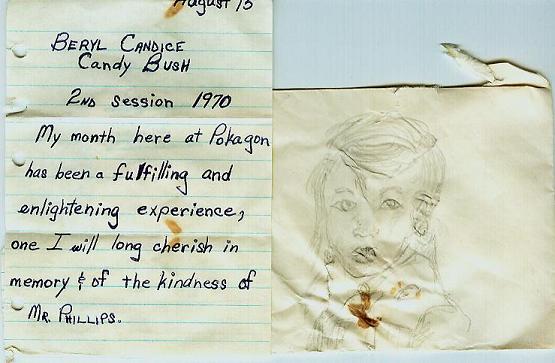 August 15
BERYL CANDICE
Candy Bush
2ND Session 1970
My month here at Pokagon
has been a fulfilling and
enlightening experience,
one I will long cherish in
memory & of the kindness of
MR. PHILLIPS.